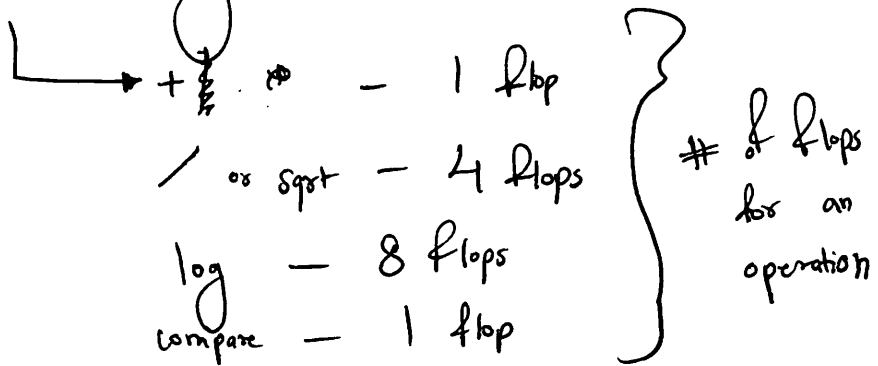 + * - 1 flop
/ or sqrt - 4 flops
log - 8 flops
compare - 1 flop
# of flops
for an
operation